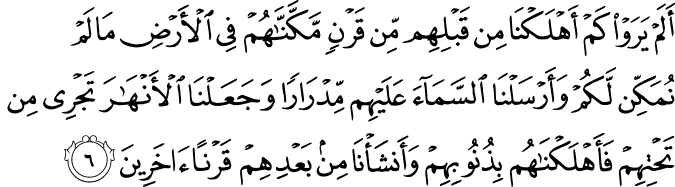 أَلَمْ يَرَوْا۟ كَمْ أَهْلَكْنَا مِن قَبْلِهِم مِّن قَرْنٍ مَّكَّنَّٰهُمْ فِى ٱلْأَرْضِ مَا لَمْ
نُمَكِّن لَّكُمْ وَأَرْسَلْنَا ٱلسَّمَآءَ عَلَيْهِم مِّدْرَارًا وَجَعَلْنَا ٱلْأَنْهَٰرَ تَجْرِى مِن
تَحْتِهِمْ فَأَهْلَكْنَٰهُم بِذُنُوبِهِمْ وَأَنشَأْنَا مِنۢ بَعْدِهِمْ قَرْنًا ءَاخَرِينَ ٦